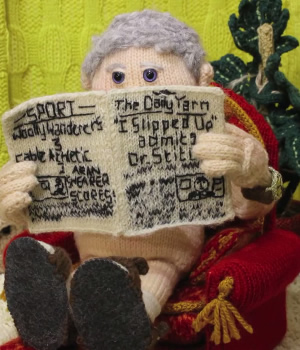 SPORT
Woolly Wanderers
3
Cable Athletic
1 ARAN
SHEARER
SCORES!
The Daily Yarn
"I Slipped Up"
admits
Dr. Stitt